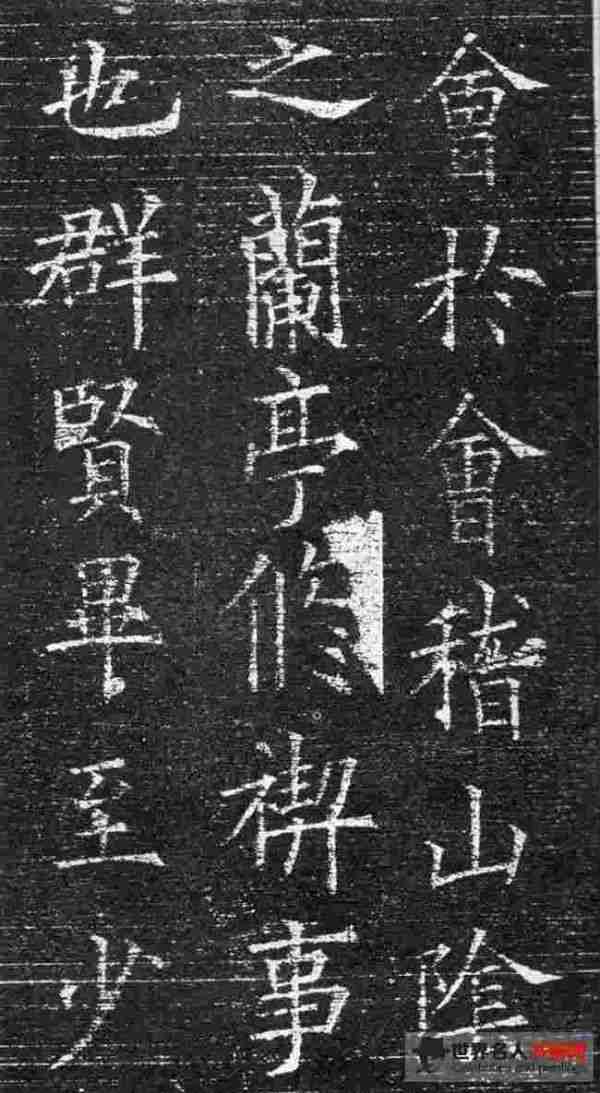 會於會稽山陰
之蘭亭修禊事
也群賢畢至少
世界名人